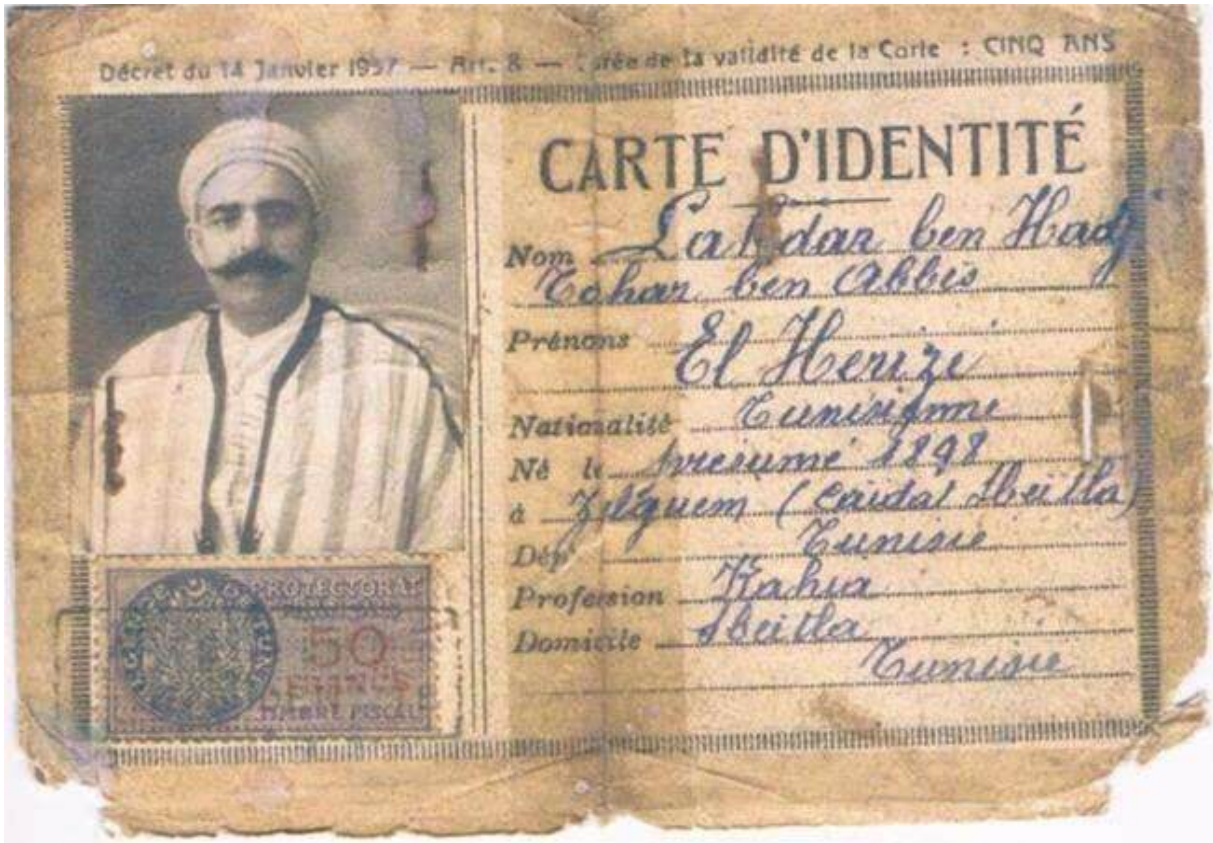 Décret du 14 Janvier 1957 — Art. 8 — Durée de la validité de la Carte : CINQ ANS
CARTE D'IDENTITÉ
Nom Lakhdar ben Hadj
Tahar ben Abbis
Prénoms
El Herize
Nationalité Tunisienne
Né le présumé 1898
à Zelguem (Caidat Sbeitla)
Dép^t Tunisie
Profession Kahia
Domicile Sbeitla
Tunisie
PROTECTORAT
50
FRANCS
TIMBRE FISCAL